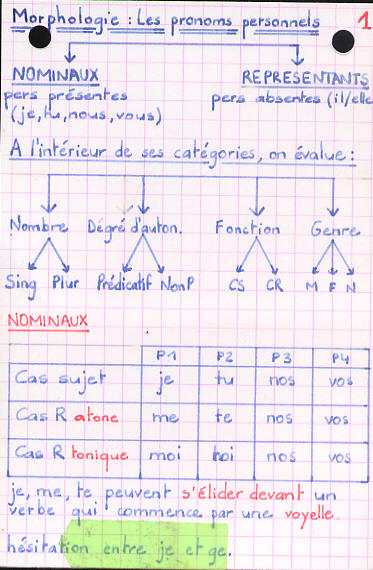 Morphologie : Les pronoms personnels 1
NOMINAUX REPRESENTANTS
pers présentes pers absentes (il/elle
(je, tu, nous, vous)
A l'intérieur de ses catégories, on évalue :
Nombre Dégré d'auton. Fonction Genre
Sing Plur Prédicatif NonP CS CR M F N
NOMINAUX
P1 P2 P3 P4
Cas sujet je tu nos vos
Cas R atone me te nos vos
Cas R tonique moi toi nos vos
je, me, te peuvent s'élider devant un
verbe qui commence par une voyelle.
hésitation entre je et ge.